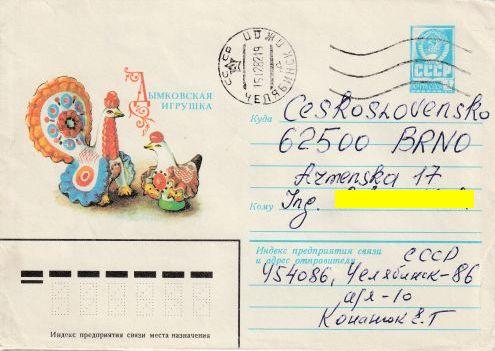 ДЫМКОВСКАЯ
ИГРУШКА
СССР ПЖДП
15 12 82 19
ЧЕЛЯБИНСК
СССР
Куда Československo
62500 BRNO
Armenska 17
Кому Ing.
Индекс предприятия связи
и адрес отправителя СССР
454086, Челябинск-86
а/я-10
Конанюк Е.Т
Индекс предприятия связи места назначения